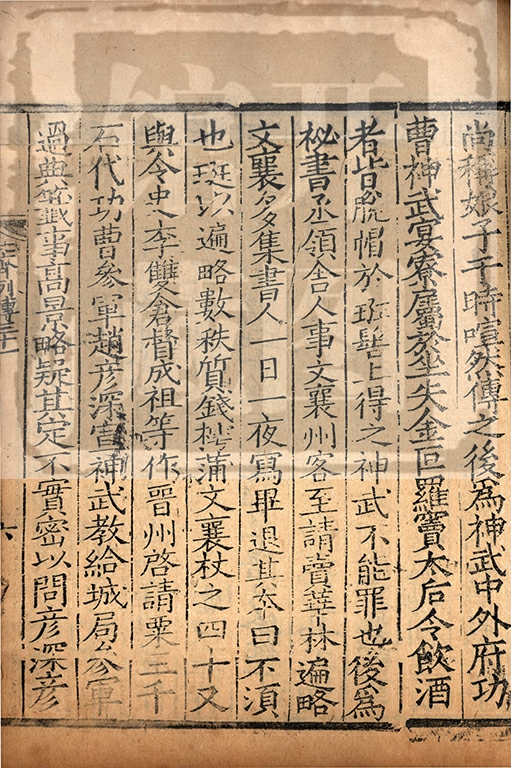 尚稱娘子于時喧然傳之後爲神武中外府功
曹神武宴寮屬於坐失金叵羅竇太后令飲酒
者皆脫帽於珽髻上得之神武不能罪也後爲
祕書丞領舍人事文襄州客至請賣華林遍略
文襄多集書人一日一夜寫畢退其本曰不須
也珽以遍略數秩質錢摴蒲文襄杖之四十又
與令史李雙倉督成祖等作晉州啓請粟三千
石代功曹參軍趙彥深宣神武教給城局參軍
過典籤事高景略疑其定不實密以問彥深彥
列傳三十一
六